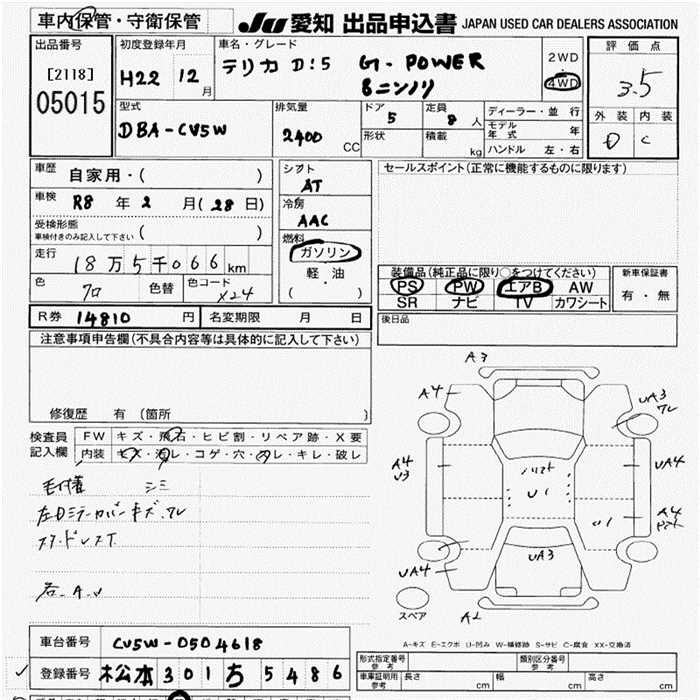 車内保管・守衛保管
JU 愛知 出品申込書 JAPAN USED CAR DEALERS ASSOCIATION
出品番号
[2118]
05015
初度登録年月
H22 12 月
車名・グレード
デリカ D:5 G-POWER
8ニンノリ
2WD
4WD
評価点
3.5
外装 内装
D C
型式
DBA-CV5W
排気量
2400 CC
ドア
5
形状
定員
8 人
積載
kg
ディーラー・並行
モデル年式 年
ハンドル 左・右
車歴
自家用・( )
車検 R8 年 2 月(28日)
受検形態
車検付きのみ記入して下さい ( )
走行
18万5千066km
色
クロ
色替
色コード
X24
シフト
AT
冷房
AAC
燃料
ガソリン
軽・油
( )
セールスポイント(正常に機能するものに限ります)
装備品(純正品に限り○をつけてください)
PS PW エアB AW
SR ナビ TV カワシート
新車保証書
有・無
R券 14810 円 名変期限 月 日
後日品
注意事項申告欄(不具合内容等は具体的に記入して下さい)
修復歴 有(箇所 )
検査員記入欄
FW キズ・飛石・ヒビ割・リペア跡・X要
内装 キズ・汚レ・コゲ・穴・スレ・キレ・破レ
シミ
左Dミラーカバーキズ.ワレ
スタッドレスT
A3
A4
UA3
ワレ
A4
U3
UA4
A4
U1
U1
UA3
UA4
A2
スペア
A-キズ E-エクボ U-凹み W-補修跡 S-サビ C-腐食 XX-交換済
車台番号 CV5W-0504618
登録番号 松本 301 ち 5486
形式指定番号
参考
類別区分番号
参考
車庫証明用
参考
長さ cm 幅 cm 高さ cm